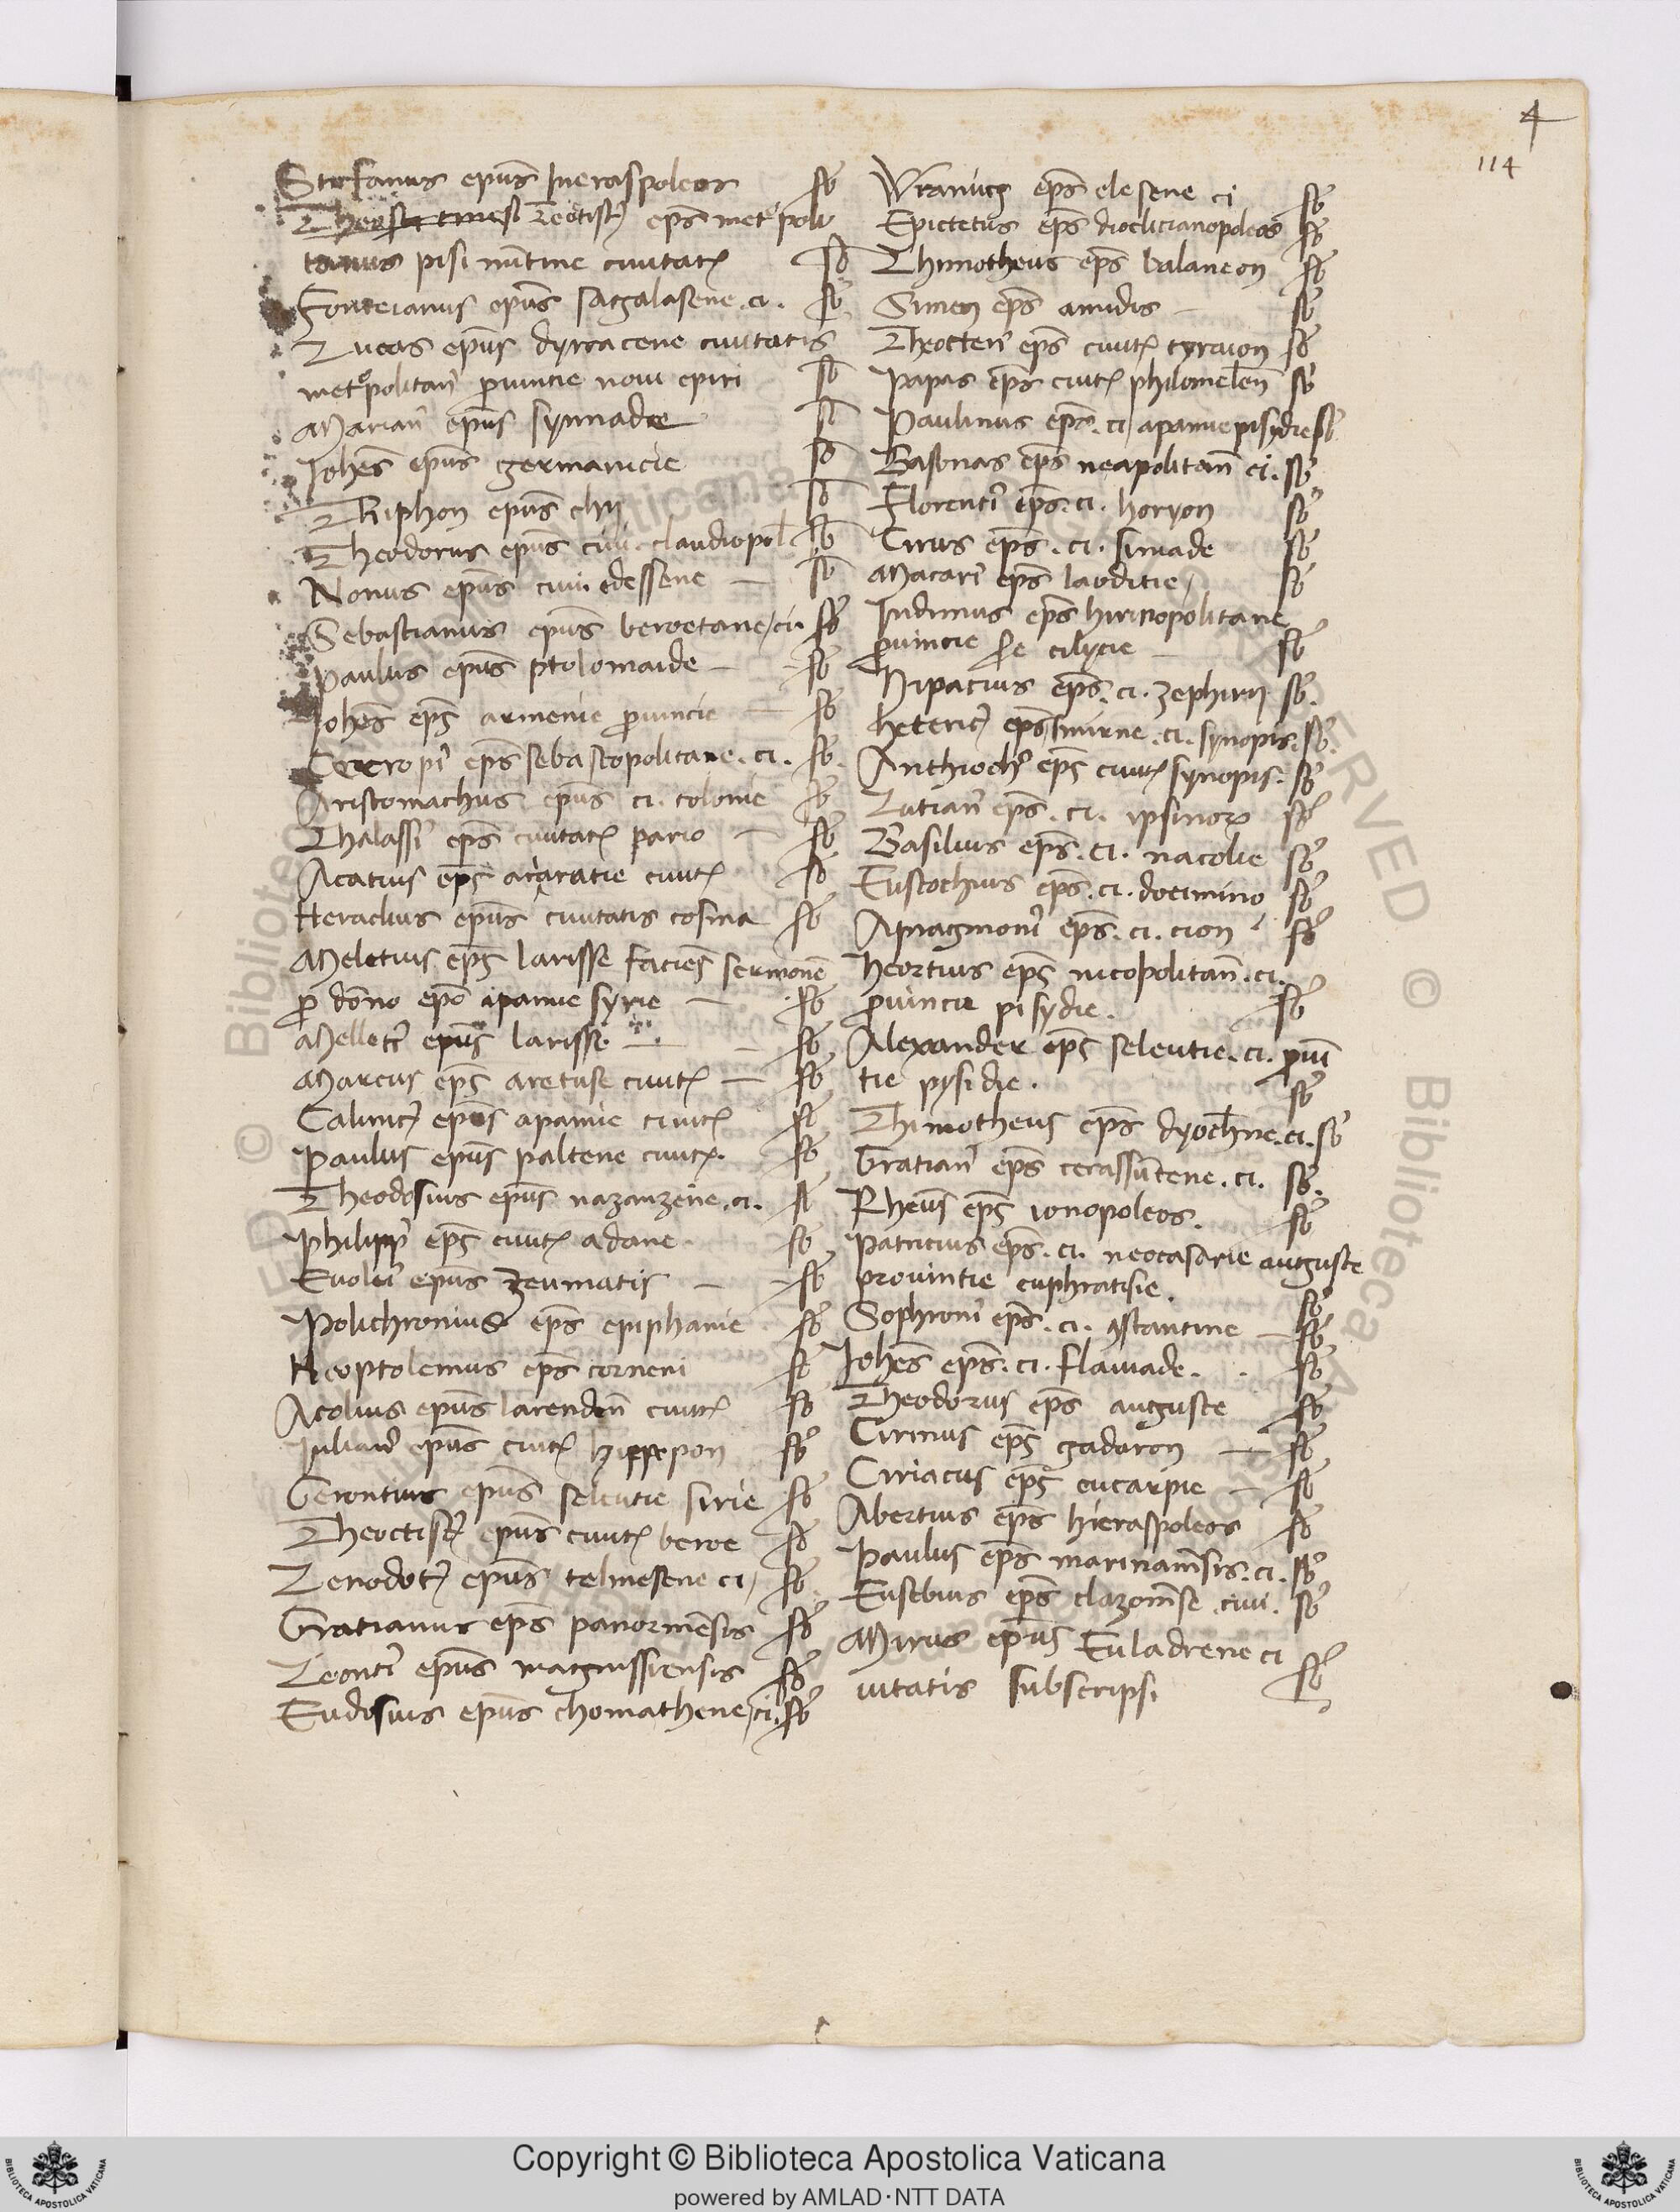 4
114
Stefanus epūs Ineraspoleos sb
Theoste timesi Teotist9 eps̄ met°poli
tanus pisi nūtine ciuitatꝭ sb
Fonteianus epūs sagalasene .ci. sb
Lucas epūs dyrracene ciuitatis
met°politan9 ꝓuincie noui epiri sb
Marian9 epūs synnade sb
Iohēs epūs germanicie sb
Thriphon epūs chij sb
Theodorus epūs ciui. claudiopol̄ sb
Nonus epūs ciui. edessene — sb
Sebastianus epūs beroetane ci. sb
Paulus epūs ptolomaide — sb
Iohēs eps̄ armenie ꝓuincie — sb
Cecropi9 eps̄ sebastopolitane .ci. sb
Aristomachus epūs ci. colonie sb
Thalassi9 eps̄ ciuitatꝭ pario — sb
Acatius eps̄ araratie ciuitꝭ sb
Heraclius epūs ciuitatis cosina sb
Meletius eps̄ larisse faciēs sermonē
ꝓ dōno epō apamie syrie — sb
Melleti9 epūs larisse — sb
Marcus eps̄ aretuse ciuitꝭ — sb
Calinic9 epūs apamie ciuitꝭ sb
Paulus epūs paltene ciuitꝭ. sb
Theodosius epūs nazanzene .ci. sb
Philipp9 eps̄ ciuitꝭ adane sb
Euolci9 epūs Zeumatis — sb
Polichronius eps̄ epiphanie sb
Neoptolemus eps̄ corneni sb
Acolius epūs larendēn ciuitꝭ sb
Iulian9 epūs ciuitꝭ hippepon sb
Gerontius epūs seleutie sirie sb
Theoctist9 epūs ciuitꝭ beroe sb
Zenodot9 epūs telmesene ci, sb
Gratianus eps̄ panormēsis sb
Leonti9 epūs magnissiensis sb
Eudosius epūs chomathene, ci. sb
Wranius eps̄ elesene ci sb
Epictetus eps̄ dioclicianopoleos sb
Thimotheus eps̄ balaneon sb
Simen eps̄ amidis — sb
Theocten9 eps̄ ciuitꝭ tyraion sb
Papas eps̄ ciuitꝭ philomelēn sb
Paulinus eps̄. ci apamie pisydie sb
Basonas eps̄ neapolitan̄ ci. sb
Florenti9 eps̄. ci. horyon sb
Cirus eps̄. ci. sinade sb
Macari9 eps̄ laoditie, sb
Indimus eps̄ hirinopolitane
ꝓuincie sc̄e cilycie — sb
Hipatius eps̄. ci. zephirij sb.
heteric9 eps̄ smirne .ci. synopis. sb.
Anthioch9 eps̄ ciuitꝭ synopis. sb
Lutian9 eps̄. ci. ipsinorꝭ sb
Basilius eps̄. ci. nacolie sb
Eustochius eps̄. ci. docimino sb
Apragmoni9 eps̄. ci. cion sb
Heortius eps̄ nicopolitan̄ .ci.
ꝓuincie pisydie. sb
Alexander eps̄ seleutie .ci. ꝓuī
tie pysidie. sb
Thimotheus eps̄ dyocl̄ne .ci. sb
Gratian9 eps̄ cerassūtene .ci. sb.
Rheūs eps̄ ionopoleos. sb
Patritius eps̄. ci. neocasarie auguste
prouintie euphratisie. sb
Sophroni9 eps̄. ci. 9stantine — sb
Iohēs eps̄. ci. flauiade. . sb
Theodorus eps̄ auguste sb
Cirinus eps̄ gadaron — sb
Ciriacus eps̄ eucarpie — sb
Abertius eps̄ hieraspoleos sb
Paulus eps̄ marinamēsis .ci. sb
Eusebius eps̄ clazomēse .ciui. sb
Mirus epūs Euladrene ci
uitatis subscripsi sb
© Biblioteca Apostolica Vaticana
Copyright © Biblioteca Apostolica Vaticana
powered by AMLAD·NTT DATA
BIBLIOTECA APOSTOLICA VATICANA
BIBLIOTECA APOSTOLICA VATICANA